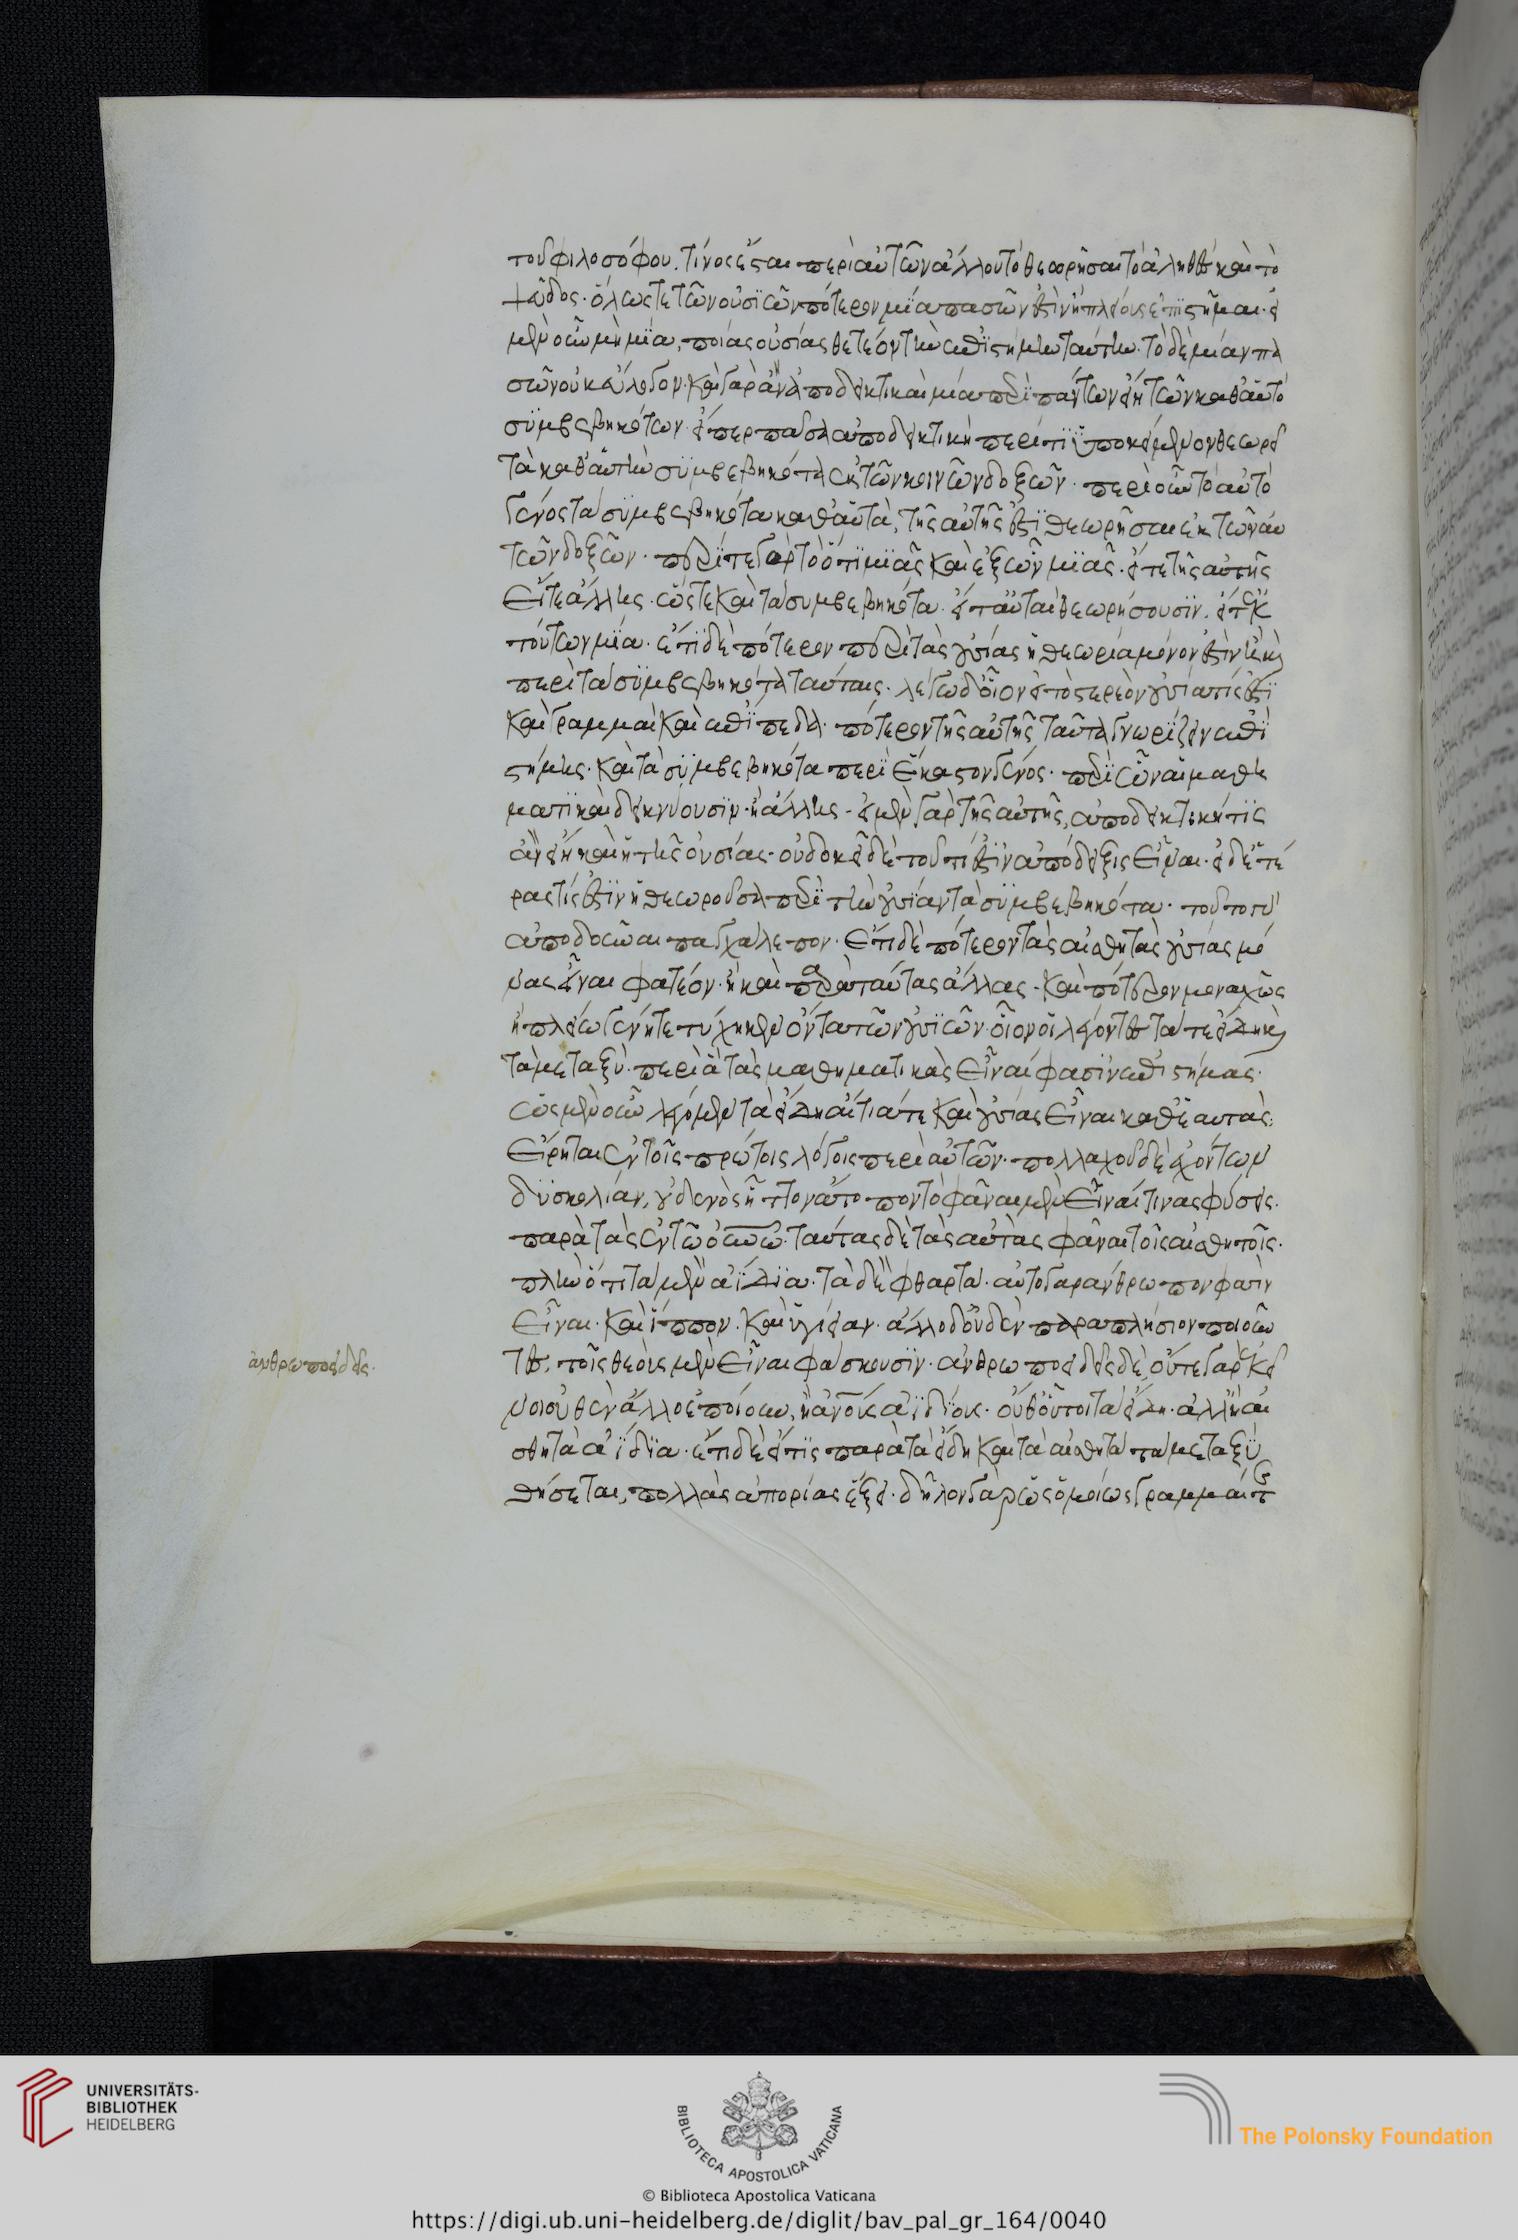 τοῦ φιλοσόφου. τίνος ἔσται περὶ αὐτῶν ἄλλου τὸ θεωρῆσαι τὸ ἀληθὲς καὶ τὸ
ψεῦδος· ὅλως τε τῶν οὐσιῶν πότερον μία πασῶν ἐστὶν ἢ πλείους ἐπιστῆμαι· εἰ
μὲν οὖν μὴ μία, ποίας οὐσίας θετέον τὴν ἐπιστήμην ταύτην. τὸ δὲ μίαν πα
σῶν οὐκ εὔλογον. καὶ γὰρ ἂν ἀποδεικτικὴ μία περὶ πάντων εἴη τῶν καθ' αὑτὸ
συμβεβηκότων. εἴπερ πᾶσα ἀποδεικτικὴ περί τι ὑποκείμενον θεωρεῖ
τὰ καθ' αὑτὴν συμβεβηκότα ἐκ τῶν κοινῶν δοξῶν. περὶ οὖν τὸ αὐτὸ
γένος τὰ συμβεβηκότα καθ' αὑτὰ, τῆς αὐτῆς ἐστὶ θεωρῆσαι ἐκ τῶν αὐ
τῶν δοξῶν. περί τε γὰρ τὸ ὅτι μιᾶς καὶ ἐξ ὧν μιᾶς. εἴτε τῆς αὐτῆς
εἴτε ἄλλης. ὥστε καὶ τὰ συμβεβηκότα. εἴτ' αὗται θεωρήσουσιν. εἴτ' ἐκ
τούτων μία. ἔτι δὲ πότερον περὶ τὰς οὐσίας ἡ θεωρία μόνον ἐστὶν ἢ καὶ
περὶ τὰ συμβεβηκότα ταύταις. λέγω δ' οἷον εἰ τὸ στερεὸν οὐσία τίς ἐστι
καὶ γραμμαὶ καὶ ἐπίπεδα. πότερον τῆς αὐτῆς ταῦτα γνωρίζειν ἐπι
στήμης. καὶ τὰ συμβεβηκότα περὶ ἕκαστον γένος. περὶ ὧν αἱ μαθη
ματικαὶ δεικνύουσιν. ἢ ἄλλης. εἰ μὲν γὰρ τῆς αὐτῆς, ἀποδεικτική τις
ἂν εἴη καὶ ἡ τῆς οὐσίας. οὐ δοκεῖ δὲ τοῦ τί ἐστιν ἀπόδειξις εἶναι. εἰ δὲ ἑτέ
ρας τίς ἐστιν ἡ θεωροῦσα περὶ τὴν οὐσίαν τὰ συμβεβηκότα. τοῦτο γὰρ
ἀποδοῦναι παγχάλεπον. ἔτι δὲ πότερον τὰς αἰσθητὰς οὐσίας μό
νας εἶναι φατέον. ἢ καὶ παρὰ ταύτας ἄλλας. καὶ πότερον μοναχῶς
ἢ πλείω γένη τετύχηκεν ὄντα τῶν οὐσιῶν. οἷον οἱ λέγοντες τά τε εἴδη καὶ
τὰ μεταξύ. περὶ ἃ τὰς μαθηματικὰς εἶναί φασιν ἐπιστήμας.
ὡς μὲν οὖν λέγομεν τὰ εἴδη αἴτιά τε καὶ οὐσίας εἶναι καθ' ἑαυτὰς.
εἴρηται ἐν τοῖς πρώτοις λόγοις περὶ αὐτῶν. πολλαχοῦ δὲ ἐχόντων
δυσκολίαν, οὐδενὸς ἧττον ἄτοπον τὸ φᾶναι μὲν εἶναί τινας φύσεις.
παρὰ τὰς ἐν τῷ οὐνῷ. ταύτας δὲ τὰς αὐτὰς φᾶναι τοῖς αἰσθητοῖς.
πλὴν ὅτι τὰ μὲν ἀΐδια. τὰ δὲ φθαρτά. αὐτὸ γὰρ ἄνθρωπον φασὶν
εἶναι. καὶ ἵππον. καὶ ὑγίειαν. ἄλλο δ' οὐδὲν παραπλήσιον ποιοῦν
τες, τοῖς θεοὺς μὲν εἶναι φάσκουσιν. ἀνθρωποειδεῖς δέ, οὔτε γὰρ ἐκεῖ
νοι οὐθὲν ἄλλο ἐποίουν, ἢ ἀνους ἀϊδίους. οὔθ' οὗτοι τὰ εἴδη. ἀλλ' ἢ αἰ
σθητὰ ἀΐδια. ἔτι δὲ εἴ τις παρὰ τὰ εἴδη καὶ τὰ αἰσθητὰ τὰ μεταξὺ
θήσεται, πολλὰς ἀπορίας ἕξει. δῆλον γὰρ ὡς ὁμοίως γραμμαί τε
ἀνθρωποειδεῖς.
UNIVERSITÄTS-
BIBLIOTHEK
HEIDELBERG
BIBLIOTECA APOSTOLICA VATICANA
The Polonsky Foundation
© Biblioteca Apostolica Vaticana
https://digi.ub.uni-heidelberg.de/diglit/bav_pal_gr_164/0040